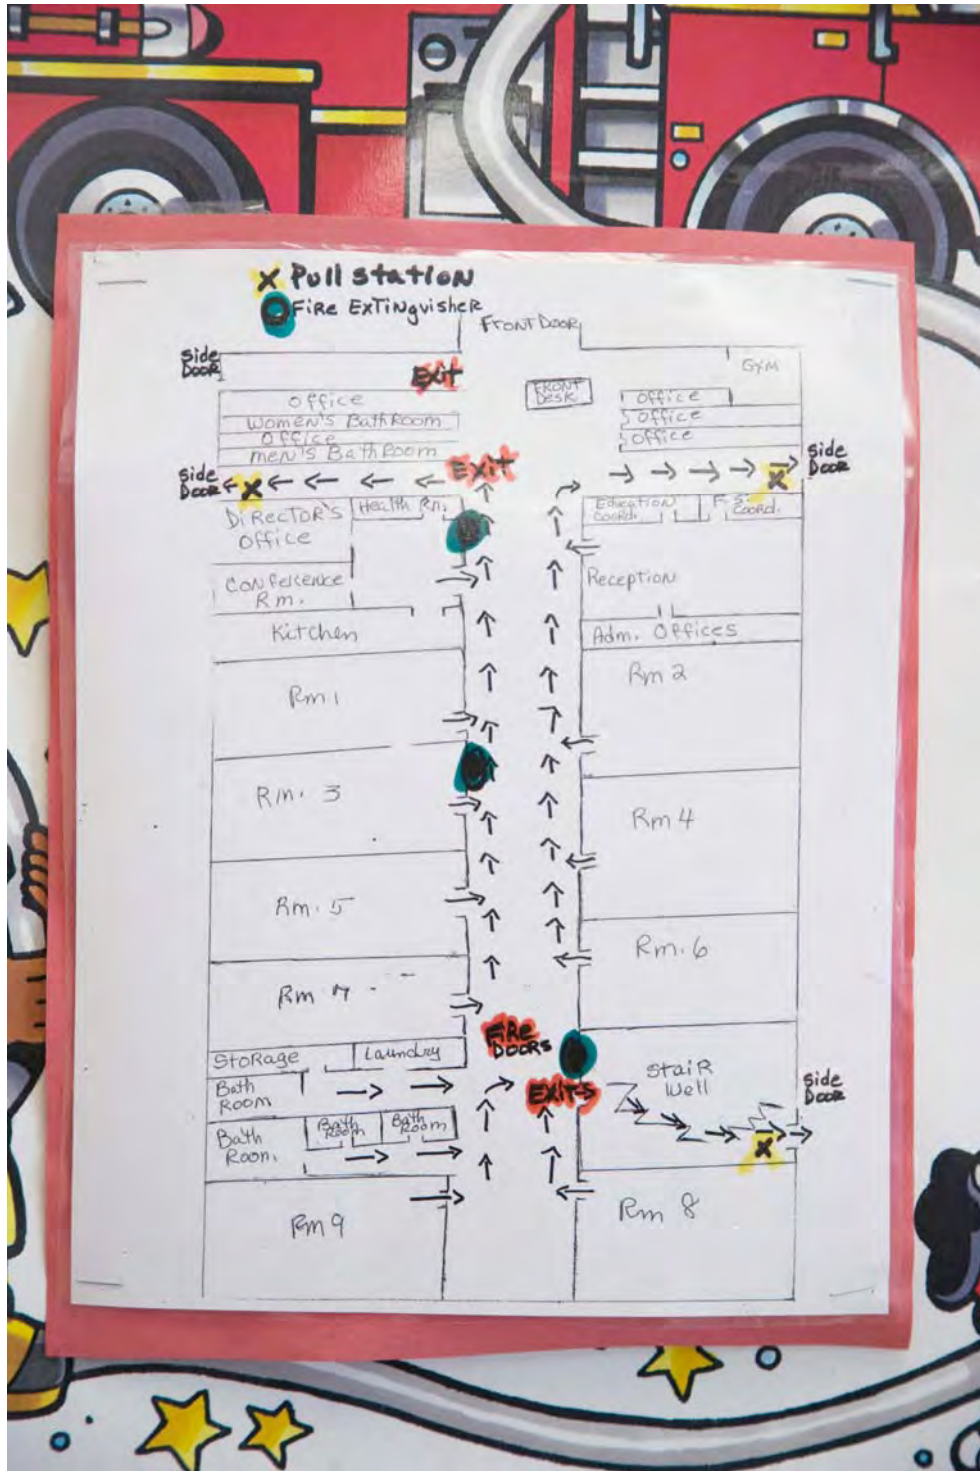 x Pull station
O Fire Extinguisher
Front Door
Side Door
Exit
Front Desk
Gym
Office
Women's Bathroom
Office
Men's Bathroom
Office
Office
Office
Side Door
x
Exit
x
Side Door
Director's Office
Health Rm.
Education Coord.
F.S. Coord.
Conference Rm.
Reception
Kitchen
Adm. Offices
Rm 1
Rm 2
Rm. 3
Rm 4
Rm. 5
Rm. 6
Rm 7
Fire Doors
Storage
Laundry
Stair Well
Bath Room
Exit
Side Door
Bath Room
Bath Room
Bath Room
x
Rm 9
Rm 8